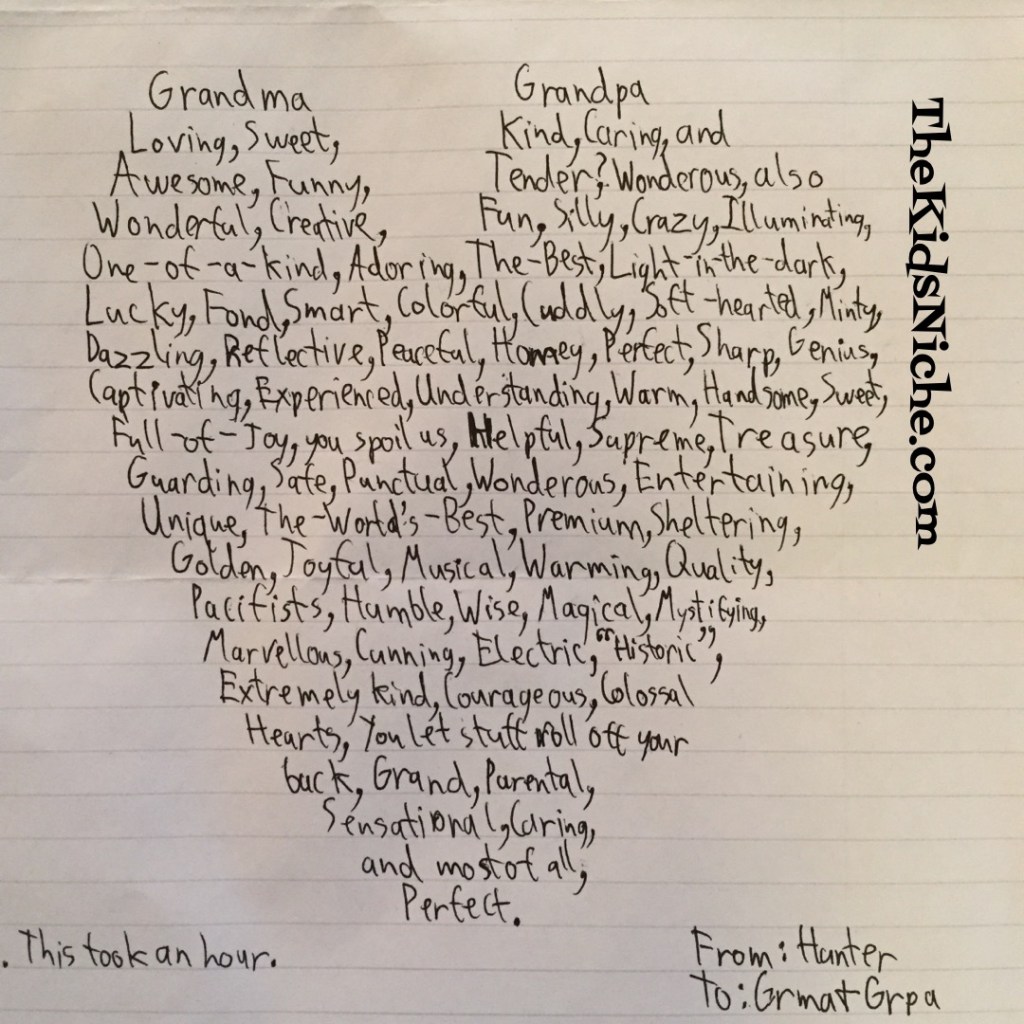 Grandma
Loving, Sweet,
Awesome, Funny,
Wonderful, Creative,
Grandpa
Kind, Caring, and
Tender? Wonderous, also
Fun, Silly, Crazy, Illuminating,
One-of-a-kind, Adoring, The-Best, Light-in-the-dark,
Lucky, Fond, Smart, Colorful, Cuddly, Soft-hearted, Minty,
Dazzling, Reflective, Peaceful, Homey, Perfect, Sharp, Genius,
Captivating, Experienced, Understanding, Warm, Handsome, Sweet,
Full-of-Joy, you spoil us, Helpful, Supreme, Treasure,
Guarding, Safe, Punctual, Wonderous, Entertaining,
Unique, The-World's-Best, Premium, Sheltering,
Golden, Joyful, Musical, Warming, Quality,
Pacifists, Humble, Wise, Magical, Mystifying,
Marvellous, Cunning, Electric, "Historic",
Extremely kind, Courageous, Colossal
Hearts, You let stuff roll off your
back, Grand, Parental,
Sensational, Caring,
and most of all,
Perfect.
. This took an hour.
From: Hunter
To: Grma + Grpa
TheKidsNiche.com